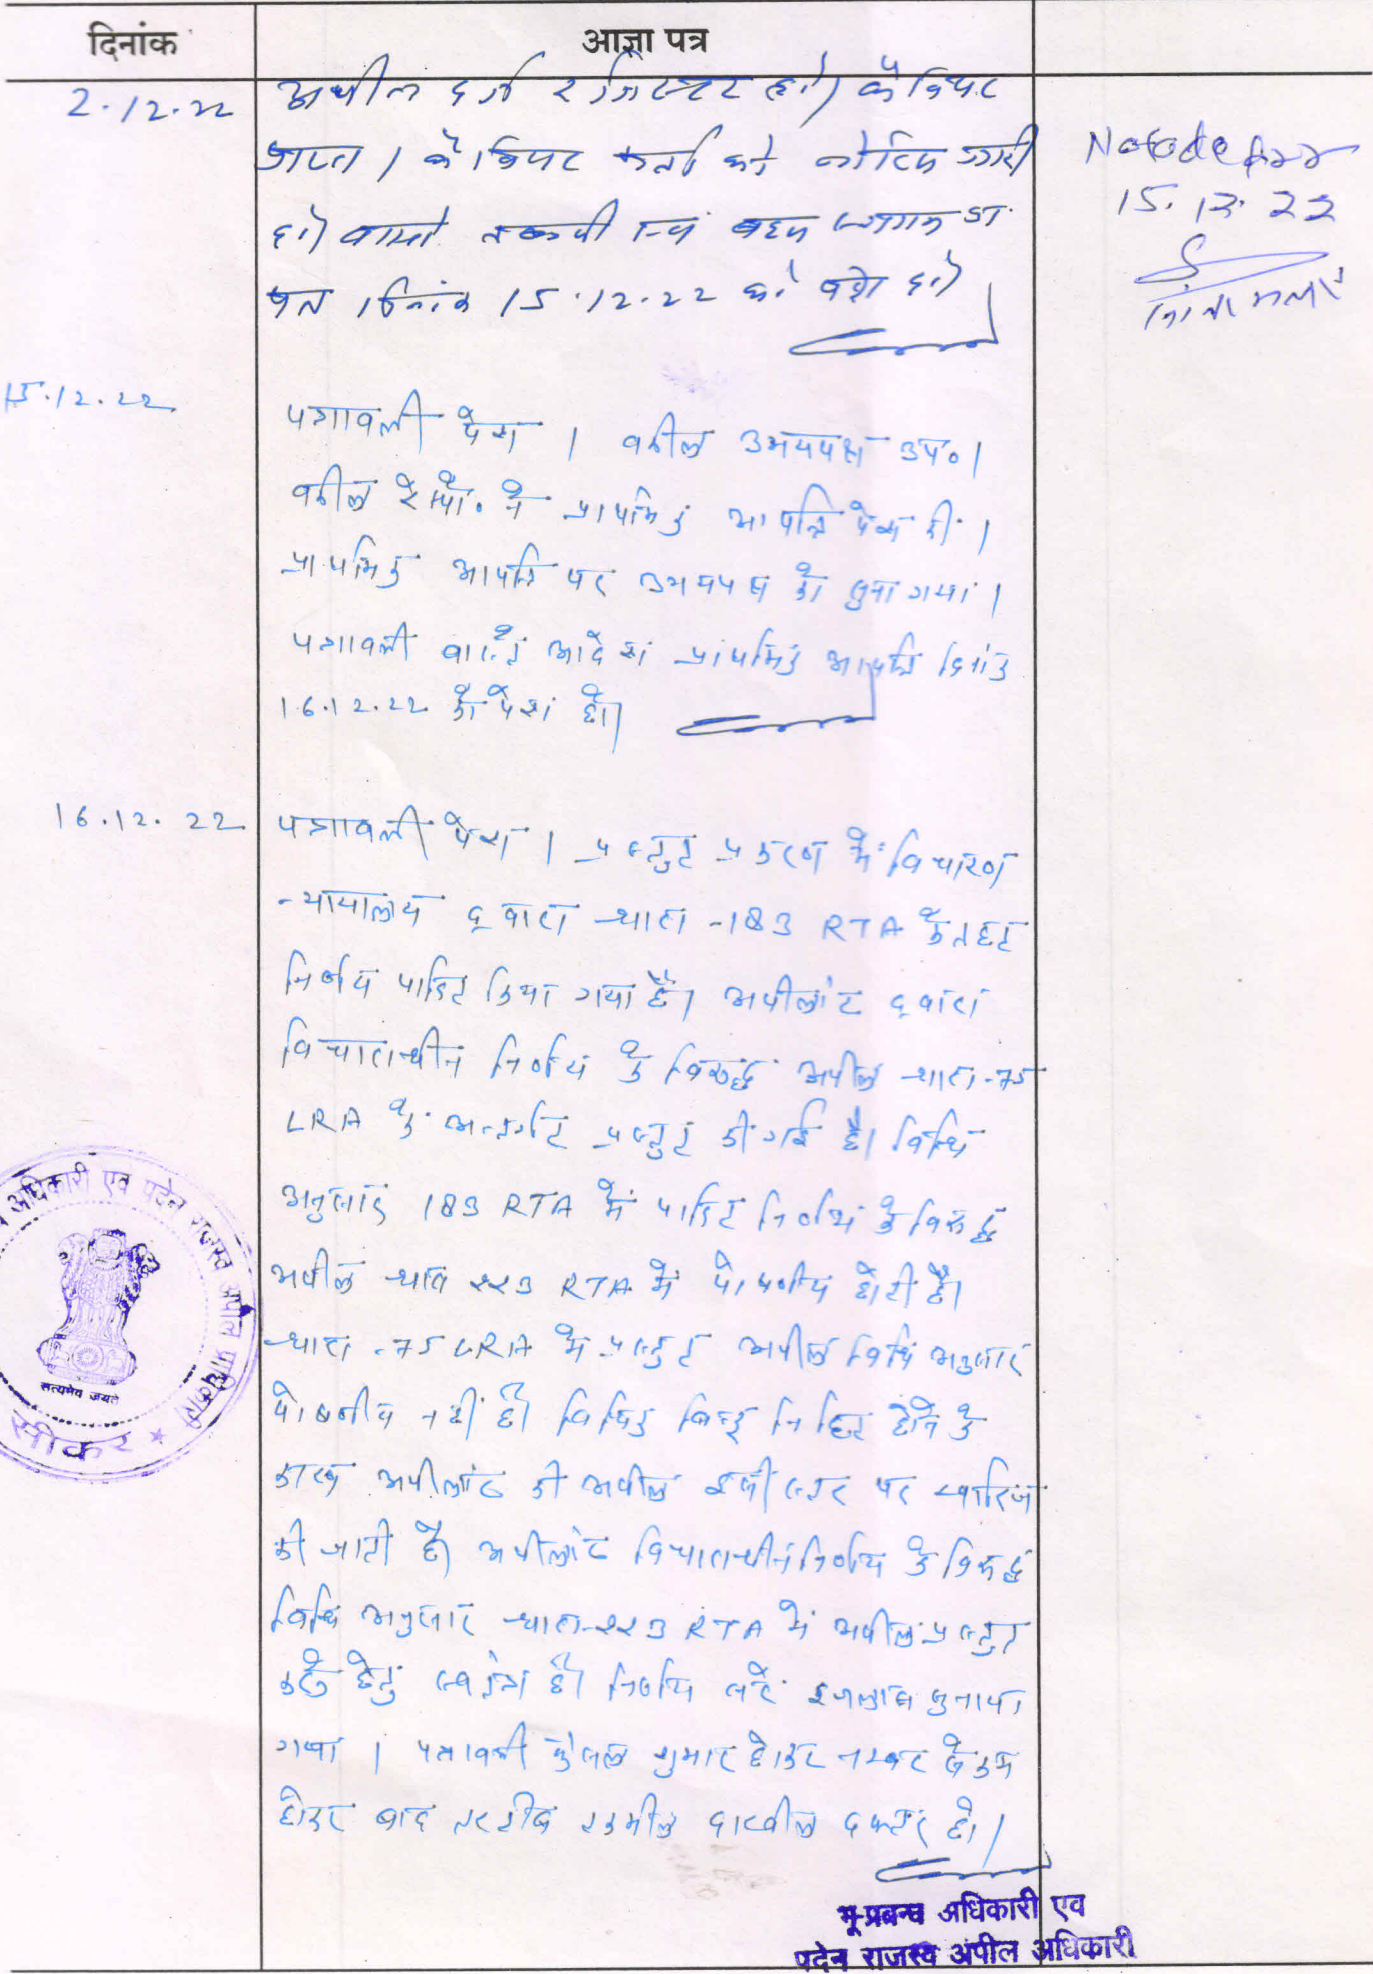 दिनांक
आज्ञा पत्र
2.12.22
अपील दर्ज रजिस्टर हो। केवियट
प्राप्त। केवियट कर्ता को नोटिस जारी
हो। वास्ते तलबी एवं बहस स्थगन प्रा.
पत्र दिनांक 15.12.22 को पेश हो।
Noted
15.12.22
15.12.22
पत्रावली पेश। वकील उभयपक्ष उप०।
वकील रेस्पो० ने प्राथमिक आपत्ति पेश की।
प्राथमिक आपत्ति पर उभयपक्ष को सुना गया।
पत्रावली वास्ते आदेश प्राथमिक आपत्ति दिनांक
16.12.22 को पेश हो।
16.12.22
पत्रावली पेश। प्रस्तुत प्रकरण में विचारण
न्यायालय द्वारा धारा-183 RTA के तहत
निर्णय पारित किया गया है। अपीलांट द्वारा
विचाराधीन निर्णय के विरूद्ध अपील धारा-75
LRA के अन्तर्गत प्रस्तुत की गई है। विधि
अनुसार 183 RTA में पारित निर्णय के विरूद्ध
अपील धारा 223 RTA में पोषणीय होती है।
धारा-75 LRA में प्रस्तुत अपील विधि अनुसार
पोषणीय नहीं है। विधिक बिन्दु निहित होने के
कारण अपीलांट की अपील इसी स्तर पर खारिज
की जाती है। अपीलांट विचाराधीन निर्णय के विरूद्ध
विधि अनुसार धारा-223 RTA में अपील प्रस्तुत
करने हेतु स्वतंत्र है। निर्णय सरे इजलास सुनाया
गया। पत्रावली फैसल शुमार होकर नम्बर से कम
होकर बाद तरतीब तकमील दाखिल दफ्तर हो।
अधिकारी एवं पदेन राजस्व अपील प्राधिकारी
सत्यमेव जयते
सीकर
भू-प्रबन्ध अधिकारी एव
पदेन राजस्व अपील अधिकारी